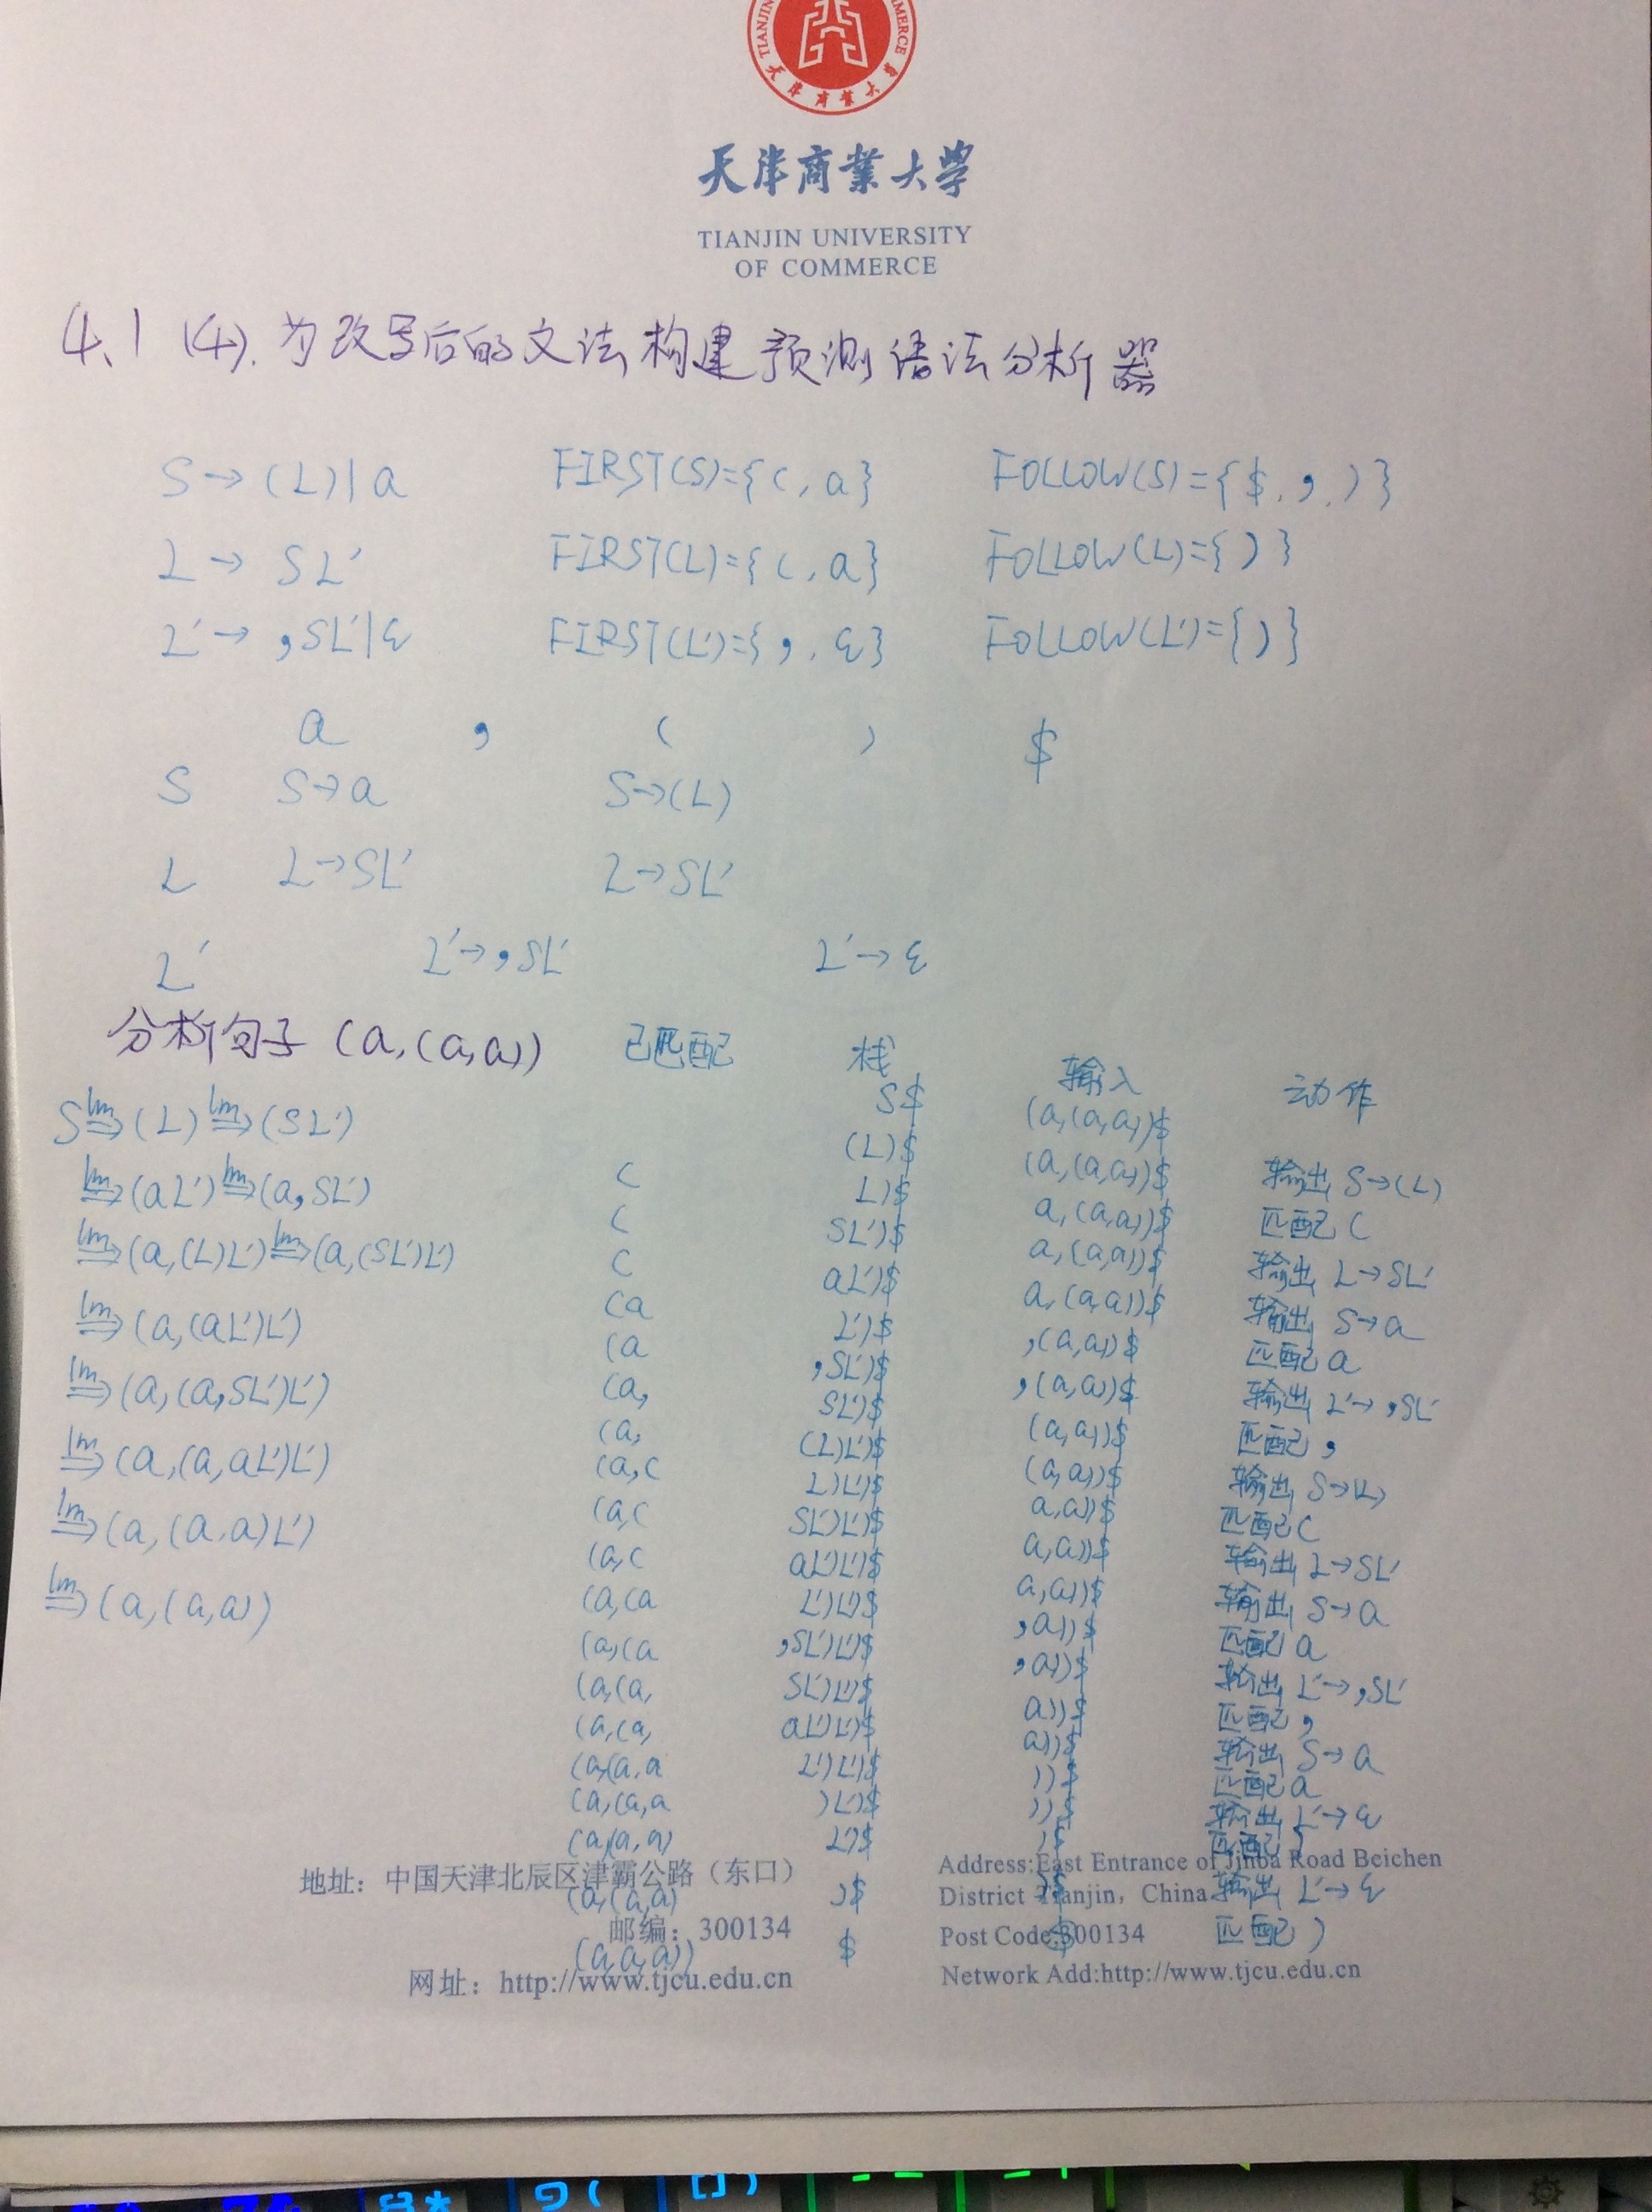 TIANJIN
COMMERCE
天津商業大
天津商業大学
TIANJIN UNIVERSITY
OF COMMERCE
4.1 (4). 为改写后的文法构建预测语法分析器
S→(L)|a FIRST(S)={(,a} FOLLOW(S)={$,,,)}
L→SL' FIRST(L)={(,a} FOLLOW(L)={)}
L'→,SL'|ε FIRST(L')={,,ε} FOLLOW(L')={)}
a , ( ) $
S S→a S→(L)
L L→SL' L→SL'
L' L'→,SL' L'→ε
分析句子 (a,(a,a)) 已匹配 栈 输入 动作
S$ (a,(a,a))$
S lm⇒ (L) lm⇒ (SL')
(L)$ (a,(a,a))$ 输出 S→(L)
lm⇒ (aL') lm⇒ (a,SL')
( L)$ a,(a,a))$ 匹配 (
( SL')$ a,(a,a))$ 输出 L→SL'
lm⇒ (a,(L)L') lm⇒ (a,(SL')L')
( aL')$ a,(a,a))$ 输出 S→a
(a L')$ ,(a,a))$ 匹配 a
lm⇒ (a,(aL')L')
(a ,SL')$ ,(a,a))$ 输出 L'→,SL'
(a, SL')$ (a,a))$ 匹配 ,
lm⇒ (a,(a,SL')L')
(a, (L)L')$ (a,a))$ 输出 S→(L)
(a,( L)L')$ a,a))$ 匹配 (
lm⇒ (a,(a,aL')L')
(a,( SL')L')$ a,a))$ 输出 L→SL'
(a,( aL')L')$ a,a))$ 输出 S→a
lm⇒ (a,(a,a)L')
(a,(a L')L')$ ,a))$ 匹配 a
(a,(a ,SL')L')$ ,a))$ 输出 L'→,SL'
lm⇒ (a,(a,a))
(a,(a, SL')L')$ a))$ 匹配 ,
(a,(a, aL')L')$ a))$ 输出 S→a
(a,(a,a L')L')$ ))$ 匹配 a
(a,(a,a )L')$ ))$ 输出 L'→ε
(a,(a,a) L')$ )$ 匹配 )
(a,(a,a) )$ )$ 输出 L'→ε
(a,(a,a)) $ $ 匹配 )
地址：中国天津北辰区津霸公路（东口）
邮编：300134
网址：http://www.tjcu.edu.cn
Address:East Entrance of Jinba Road Beichen
District Tianjin, China
Post Code:300134
Network Add:http://www.tjcu.edu.cn